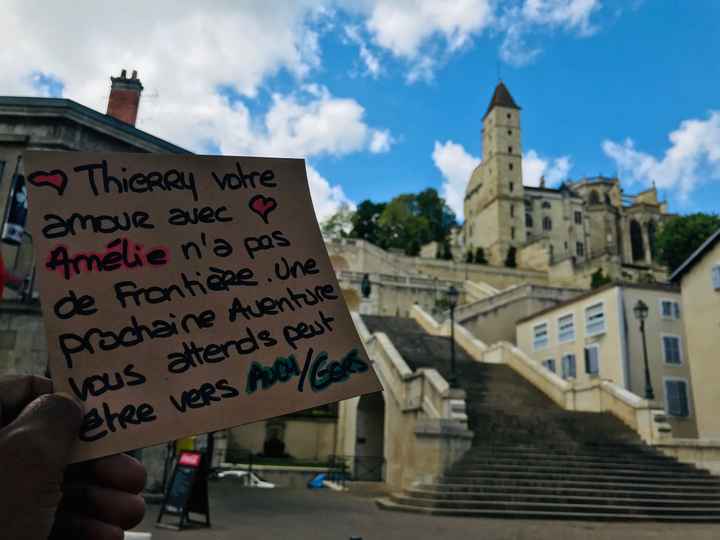 Thierry votre
amour avec
Amélie n'a pas
de Frontière. Une
prochaine Aventure
vous attends peut
être vers AUCH/GERS